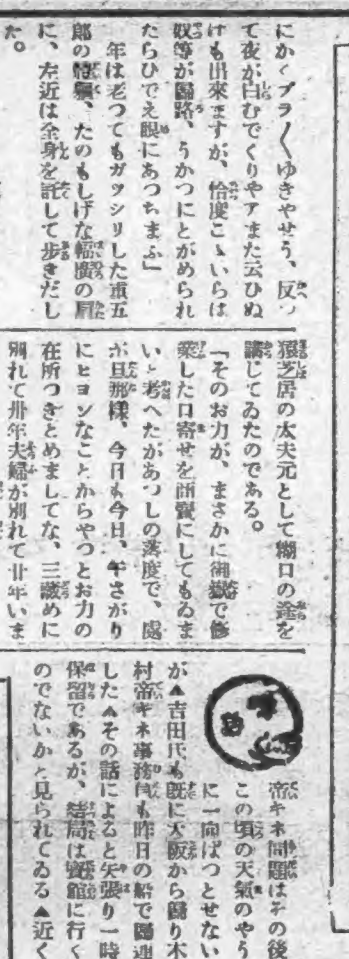 にかくブラ〳〵ゆきやせう、反つ
て夜が白むでくりやアまた云ひぬ
けも出來ますが、恰度こゝいらは
奴等が歸路、うかつにとがめられ
たらひでえ眼にあつちまふ」
年は老つてもガツシリした重五
郎の 、たのもしげな幅廣の肩
に、左近は全身を託して歩きだし
た。
猿芝居の太夫元として糊口の途を
講じてゐたのである。
「そのお力が、まさかに御嶽で修
業した口寄せを商賣にしてもゐま
いと考へたがあつしの落度で、處
が旦那様、今日も今日、午さがり
にヒヨンなことからやつとお力の
在所つきとめましてな、三 めに
別れて卅年夫婦が別れて廿年いま
帝キネ問題はその後
この頃の天氣のやう
に一向ぱつとせない
が▲吉田氏も既に大阪から歸り木
村帝キネ事務 も昨日の船で歸連
した▲その話によると矢張り一時
保留であるが、結局は寶館に行く
のでないかと見られてゐる▲近く